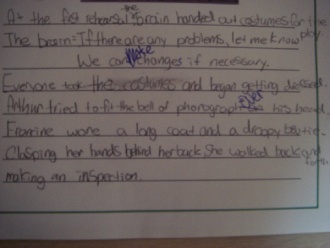 At the fist rehearsal the brain handed out costumes for the play.
The brain: If there are any problems, let me know
We can make changes if necessary.
Everyone took the costumes and began getting dressed.
Arthur tried to fit the bell of phonograph over his head.
Francine wore a long coat and a droopy bowtie.
Clasping her hands behind her back, She walked back and forth
making an inspection.